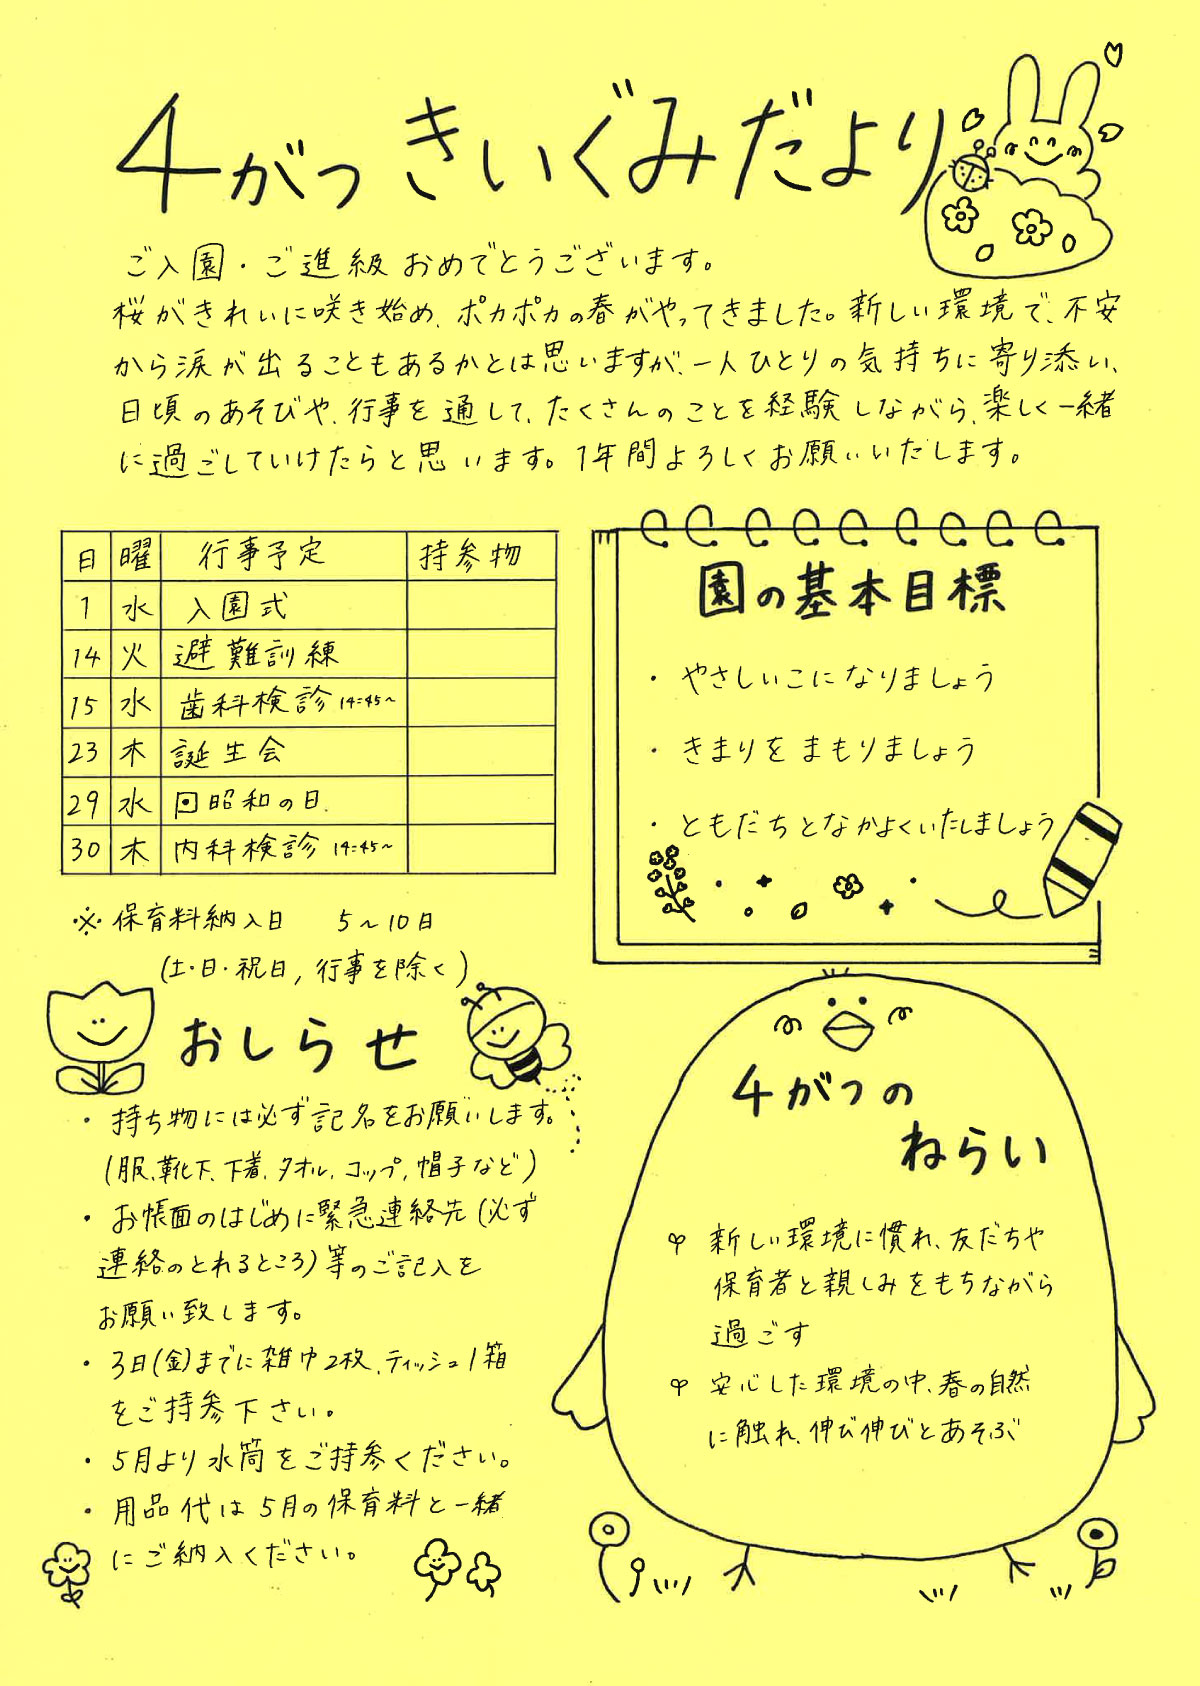 4がつ きいぐみだより
ご入園・ご進級おめでとうございます。
桜がきれいに咲き始め、ポカポカの春がやってきました。新しい環境で、不安
から涙が出ることもあるかとは思いますが、一人ひとりの気持ちに寄り添い、
日頃のあそびや、行事を通して、たくさんのことを経験しながら、楽しく一緒
に過ごしていけたらと思います。1年間よろしくお願いいたします。
日 曜 行事予定 持参物
1 水 入園式
14 火 避難訓練
15 水 歯科検診 14:45~
23 木 誕生会
29 水 昭和の日
30 木 内科検診 14:45~
※ 保育料納入日 5~10日
(土・日・祝日, 行事を除く)
園の基本目標
・やさしいこになりましょう
・きまりをまもりましょう
・ともだちとなかよくいたしましょう
おしらせ
・持ち物には必ず記名をお願いします。
(服、靴下、下着、タオル、コップ、帽子など)
・お帳面のはじめに緊急連絡先(必ず
連絡のとれるところ)等のご記入を
お願い致します。
・3日(金)までに雑巾2枚、ティッシュ1箱
をご持参下さい。
・5月より水筒をご持参ください。
・用品代は5月の保育料と一緒
にご納入ください。
4がつの
ねらい
新しい環境に慣れ、友だちや
保育者と親しみをもちながら
過ごす
安心した環境の中、春の自然
に触れ、伸び伸びとあそぶ